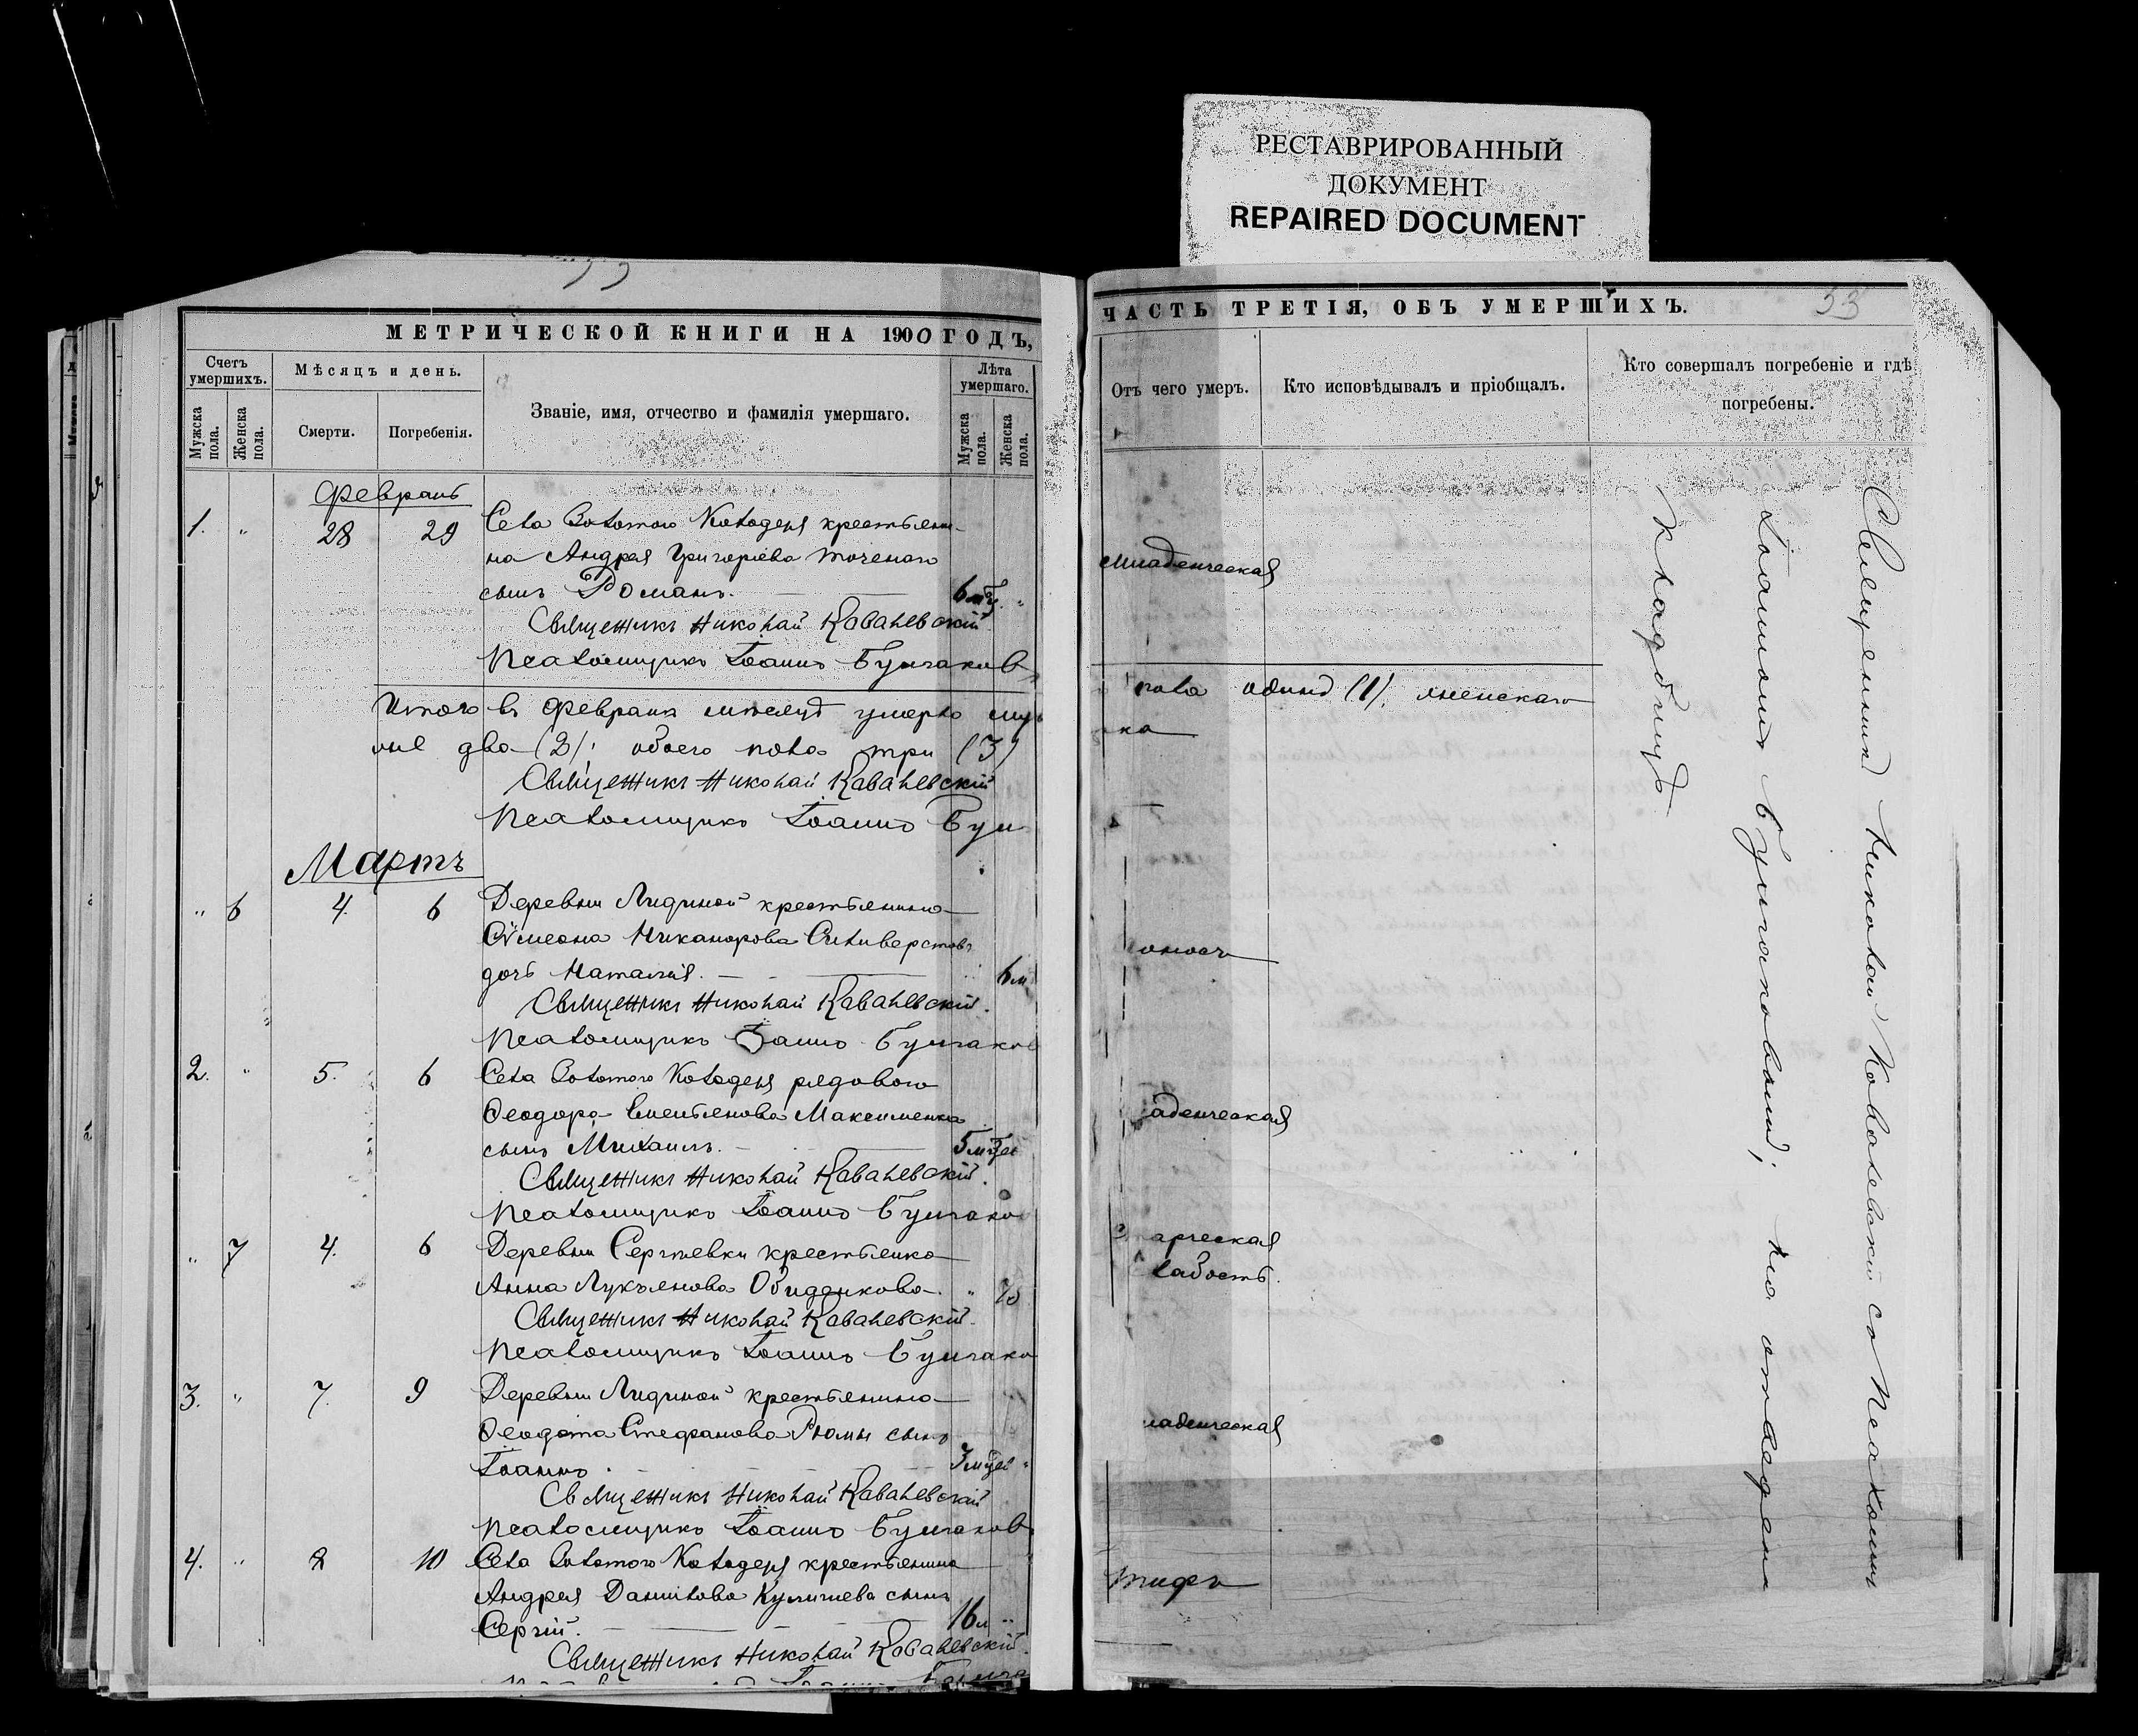 РЕСТАВРИРОВАННЫЙ
ДОКУМЕНТ
REPAIRED DOCUMENT
МЕТРИЧЕСКОЙ КНИГИ НА 1900 ГОДЪ,
Счетъ умершихъ.
Мужска пола.
Женска пола.
Мѣсяцъ и день.
Смерти.
Погребенія.
Званіе, имя, отчество и фамилія умершаго.
Лѣта умершаго.
Мужска пола.
Женска пола.
Февраль
1. " 28 29 Села Золотого Колодезя крестьяни-
на Андрея Григоріева Точенаго
сынъ Романъ. 6 мц. "
Священникъ Николай Ковалевскій
Псаломщикъ Іоаннъ Булгаковъ
Итого въ Февралѣ мѣсяцѣ умерло муж
два (2); обоего пола три (3)
Священникъ Николай Ковалевскій
Псаломщикъ Іоаннъ Бул
Мартъ
" 6 4. 6 Деревни Лидиной крестьянина
Сѵмеона Никанорова Силиверстова
дочь Наталія. 6 м
Священникъ Николай Ковалевскій.
Псаломщикъ Іоаннъ Булгаков
2. " 5. 6 Села Золотого Колодезя рядового
Ѳеодора Емельянова Максименка
сынъ Михаилъ. 5 мцев
Священникъ Николай Ковалевскій.
Псаломщикъ Іоаннъ Булгаков
" 7 4. 6 Деревни Сергѣевки крестьянка
Анна Лукьянова Обиденкова. " 70
Священникъ Николай Ковалевскій.
Псаломщикъ Іоаннъ Булгако
3. " 7. 9 Деревни Лидиной крестьянина
Ѳеодота Стефанова Ромы сынъ
Іоаннъ. 3 мцев "
Священникъ Николай Ковалевскій
Псаломщикъ Іоаннъ Булгаков
4. " 8 10 Села Золотого Колодезя крестьянина
Андрея Данилова сынъ
Сергій. 16 л "
Священникъ Николай Ковалевскій.
ЧАСТЬ ТРЕТІЯ, ОБЪ УМЕРШИХЪ.
53
Отъ чего умеръ.
Кто исповѣдывалъ и пріобщалъ.
Кто совершалъ погребеніе и гдѣ погребены.
младенческая
пола одинъ (1), женскаго
ладенческая
арческая
лабость.
ладенческая
тифъ
Священникъ Николай Ковалевскій со Псаломщ
Іоанномъ Булгаковымъ; на отведен
кладбищѣ